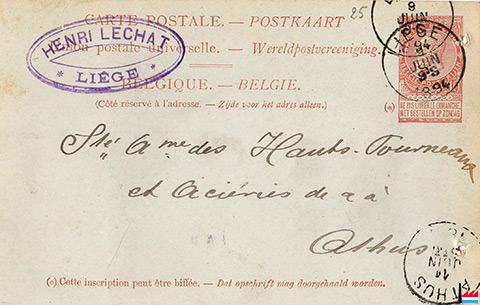 CARTE POSTALE. — POSTKAART
Union postale universelle. — Wereldpostvereeniging.
BELGIQUE. — BELGIE.
(Côté réservé à l'adresse. — Zijde voor het adres alleen.)
HENRI LECHAT
* LIÉGE *
25
9
JUIN
94
JUIN
9-S
1894
(*)
NE PAS LIVRER LE DIMANCHE
NIET BESTELLEN OP ZONDAG
Sté Ame des Hauts-Fourneaux
et Aciéries de a à
Athus
11
JUIN
ATHUS
(*) Cette inscription peut être biffée. — Dat opschrift mag doorgehaald worden.